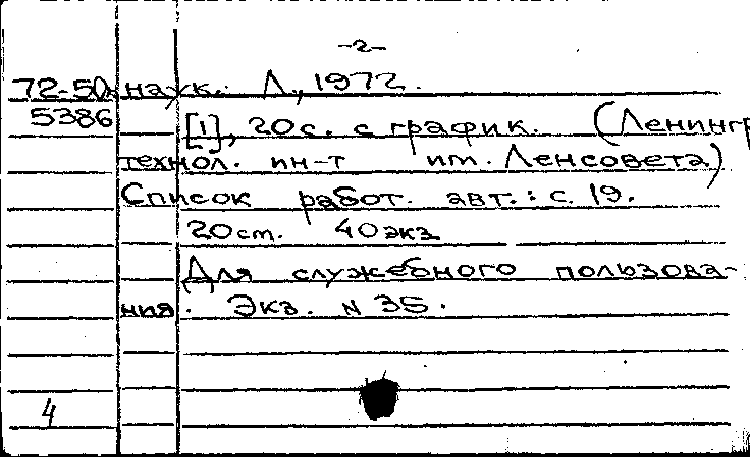 -2-
72-50 наук. Л., 1972.
5386 [1], 20с. с график. (Ленингр
технол. ин-т им. Ленсовета)
Список работ. авт.: с. 19.
20ст. 40экз
Для служебного пользова-
ния. Экз. N 35.
4